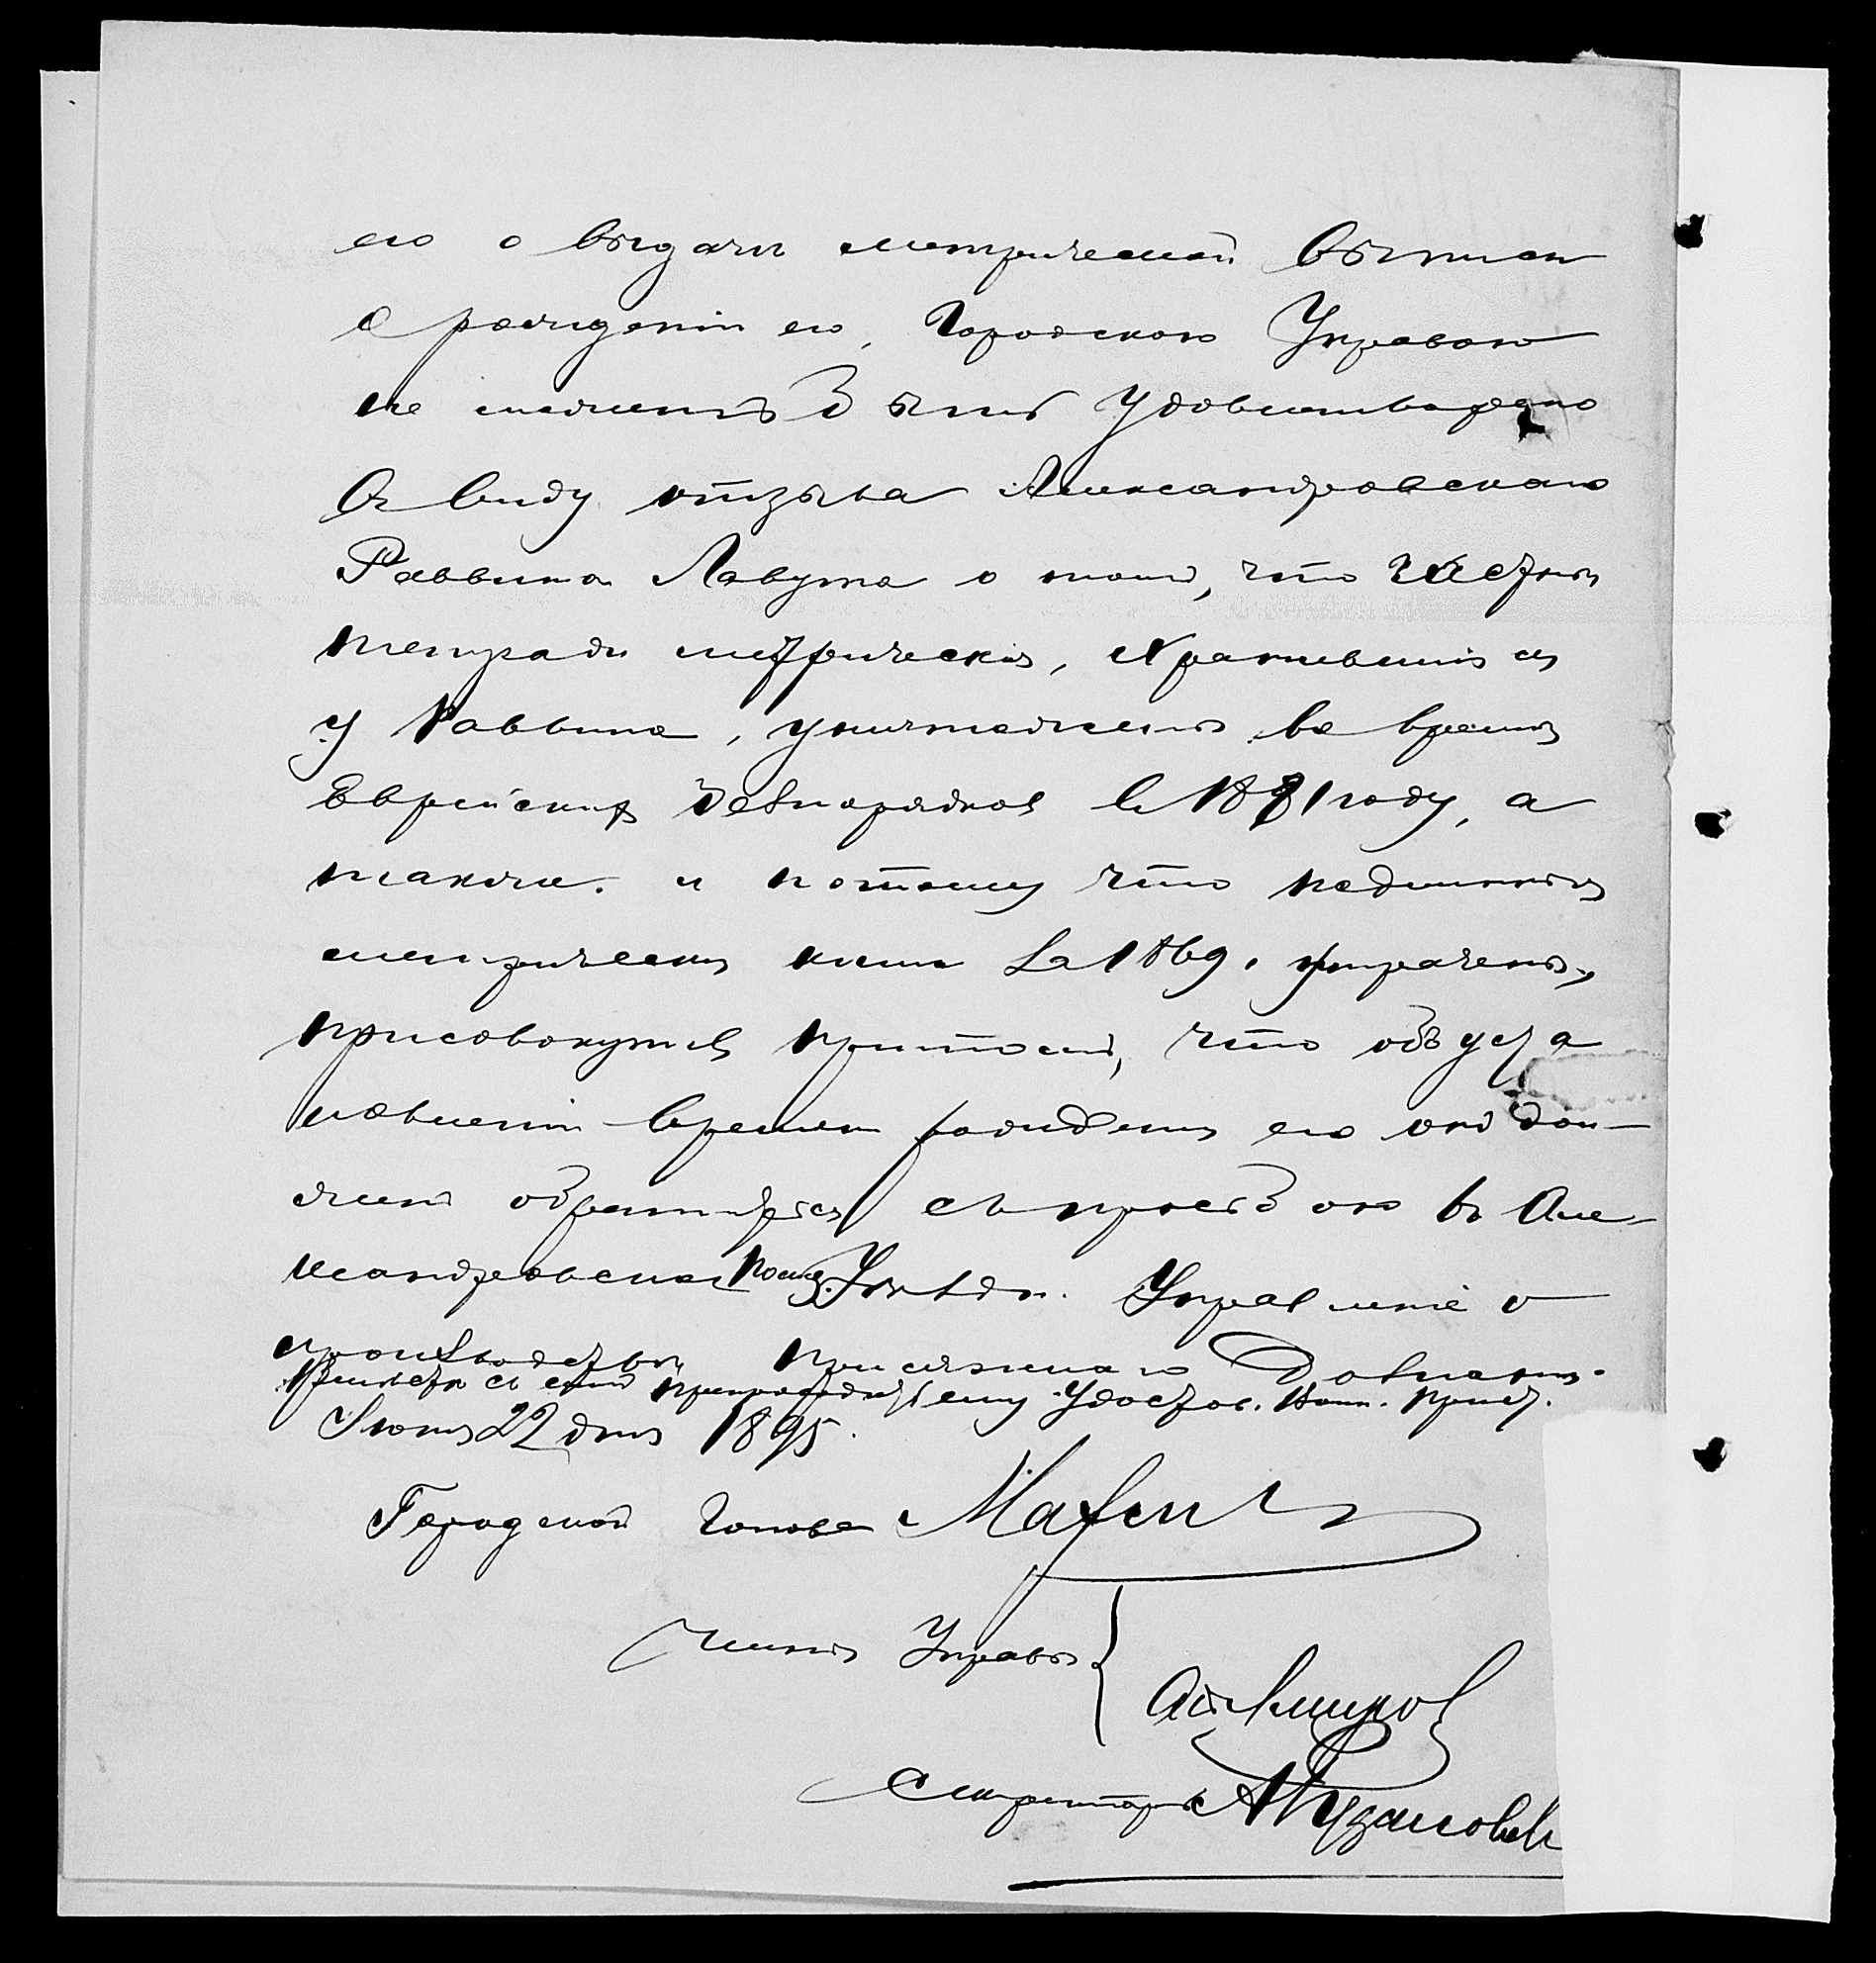 его о выдачи метрической выписи
о рожденіи его, Городскою Управою
не можетъ быть удовлетворено
въ виду отзыва Александровскаго
Раввина Лавута о томъ, что частныя
тетради метрическія, хранившіяся
у Раввина, уничтожены во время
Еврейскихъ безпорядковъ въ 1881 году, а
также и потому что подлинныя
метрическія книги за 1869 г. утрачены,
присовокупивъ притомъ, что объ уста
новленіи времени рожденія его онъ дол-
женъ обратиться съ просьбою въ Але-
ксандровское Полиц. Уѣздн. Управленіе о
производствѣ присяжнаго дознанія.
Вмѣстѣ съ симъ препровождается ему удостов. Воин. Присут.
Іюня 22 дня 1895.
Городской Голова
Члены Управы
Секретарь